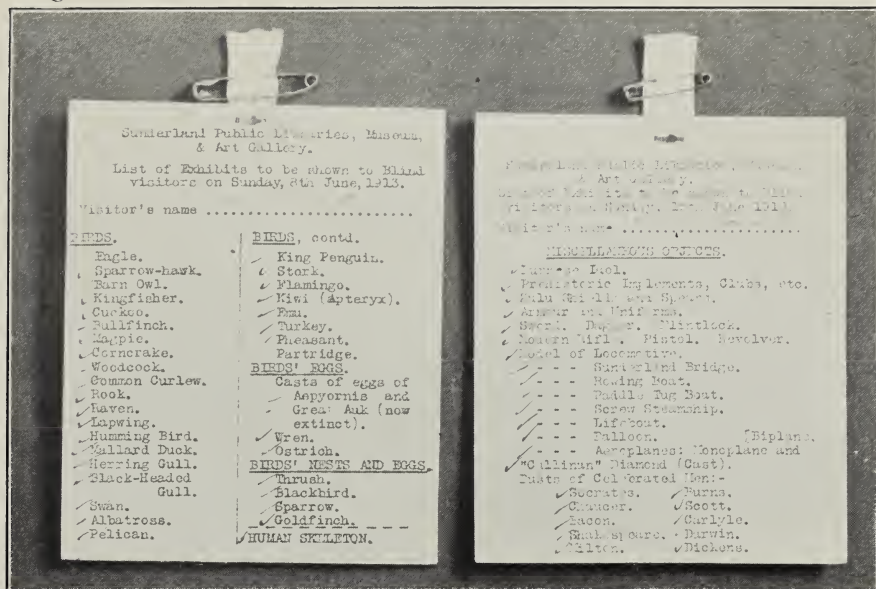 Sunderland Public Libraries, Museum,
& Art Gallery.
List of Exhibits to be shown to Blind
visitors on Sunday, 8th June, 1913.
Visitor's name ........................
BIRDS.
Eagle.
Sparrow-hawk.
Barn Owl.
Kingfisher.
Cuckoo.
Bullfinch.
Magpie.
Corncrake.
Woodcock.
Common Curlew.
Rook.
Raven.
Lapwing.
Humming Bird.
Mallard Duck.
Herring Gull.
Black-Headed
Gull.
Swan.
Albatross.
Pelican.
BIRDS, contd.
King Penguin.
Stork.
Flamingo.
Kiwi (Apteryx).
Emu.
Turkey.
Pheasant.
Partridge.
BIRDS' EGGS.
Casts of eggs of
Aepyornis and
Great Auk (now
extinct).
Wren.
Ostrich.
BIRDS' NESTS AND EGGS.
Thrush.
Blackbird.
Sparrow.
Goldfinch.
HUMAN SKELETON.
Sunderland Public Libraries,
& Art Gallery.
List of Exhibits to be shown to Blind
visitors on Sunday, June 1913.
Visitor's name ......................
MISCELLANEOUS OBJECTS.
Burmese Idol.
Prehistoric Implements, Clubs, etc.
Zulu Shields and Spears.
Armour and Uniforms.
Sword. Dagger. Flintlock.
Modern Rifle. Pistol. Revolver.
Model of Locomotive.
- - - Sunderland Bridge.
- - - Rowing Boat.
- - - Paddle Tug Boat.
- - - Screw Steamship.
- - - Lifeboat.
- - - Balloon. [Biplane.
- - - Aeroplanes: Monoplane and
"Cullinan" Diamond (Cast).
Busts of Celebrated Men:-
Socrates. Burns.
Chaucer. Scott.
Bacon. Carlyle.
Shakespeare. Darwin.
Milton. Dickens.